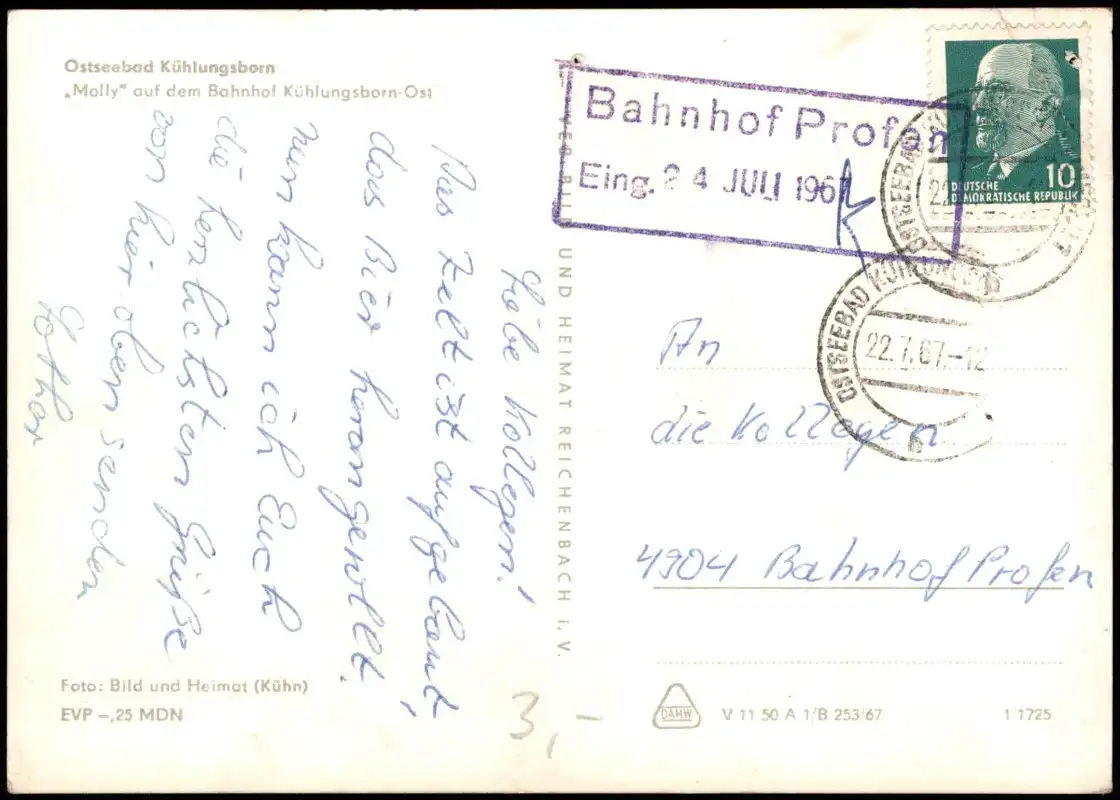 Ostseebad Kühlungsborn
„Molly“ auf dem Bahnhof Kühlungsborn-Ost
Liebe Kollegen!
Das Zelt ist aufgebaut,
das Bier herangerollt.
Nun kann ich Euch
die herzlichsten Grüße
von hier oben senden
Lothar
Foto: Bild und Heimat (Kühn)
EVP –,25 MDN
3,–
UND HEIMAT REICHENBACH i. V.
Bahnhof Profen
Eing. 24 JULI 1967
DEUTSCHE
DEMOKRATISCHE REPUBLIK
10
OSTSEEBAD
22
OSTSEEBAD KÜHLUNGSB
22.7.67-12
b
An
die Kollegen
4904 Bahnhof Profen
DAHW
V 11 50 A 1/B 253/67
1/1725